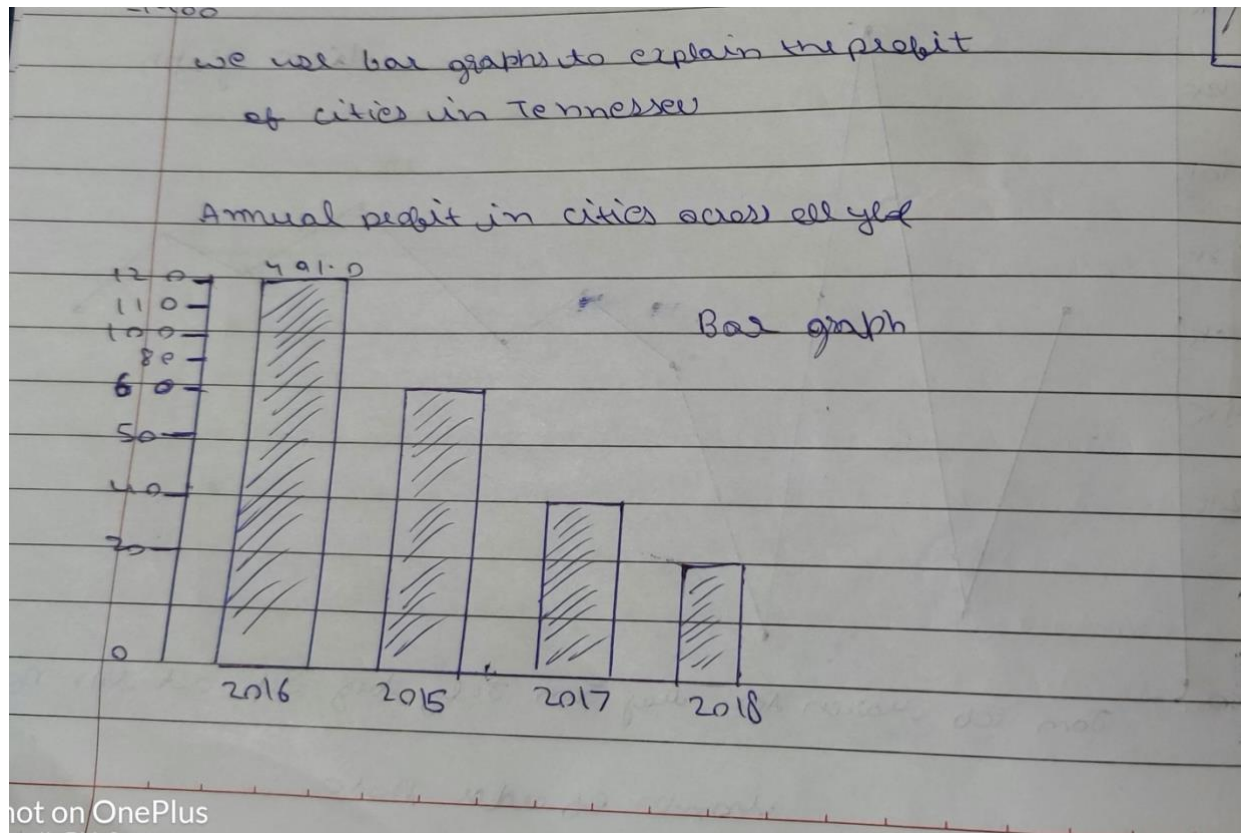 -1400
we use bar graphs to explain the profit
of cities in Tennessee
Annual profit in cities across all
491.0
120
110
100
80
60
50
40
20
0
Bar graph
2016 2015 2017 2018
not on OnePlus